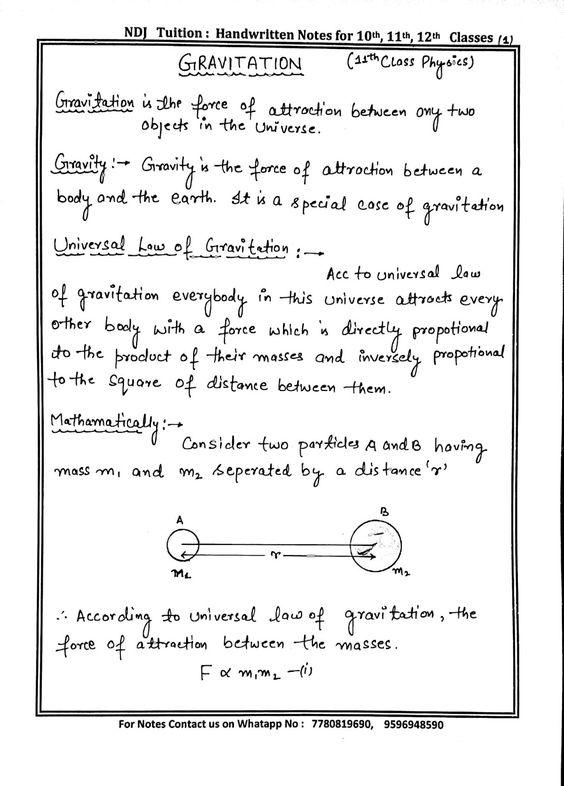 NDJ Tuition : Handwritten Notes for 10th, 11th, 12th Classes (1)
GRAVITATION (11th Class Physics)
Gravitation is the force of attraction between any two
objects in the Universe.
Gravity :→ Gravity is the force of attraction between a
body and the earth. It is a special case of gravitation
Universal Law of Gravitation :→
Acc to universal law
of gravitation everybody in this universe attracts every
other body with a force which is directly propotional
to the product of their masses and inversely propotional
to the square of distance between them.
Mathamatically :→
Consider two particles A and B having
mass m₁ and m₂ seperated by a distance 'r'
A B
r
M₁ m₂
∴ According to universal law of gravitation, the
force of attraction between the masses.
F ∝ m₁m₂ —(i)
For Notes Contact us on Whatapp No : 7780819690, 9596948590